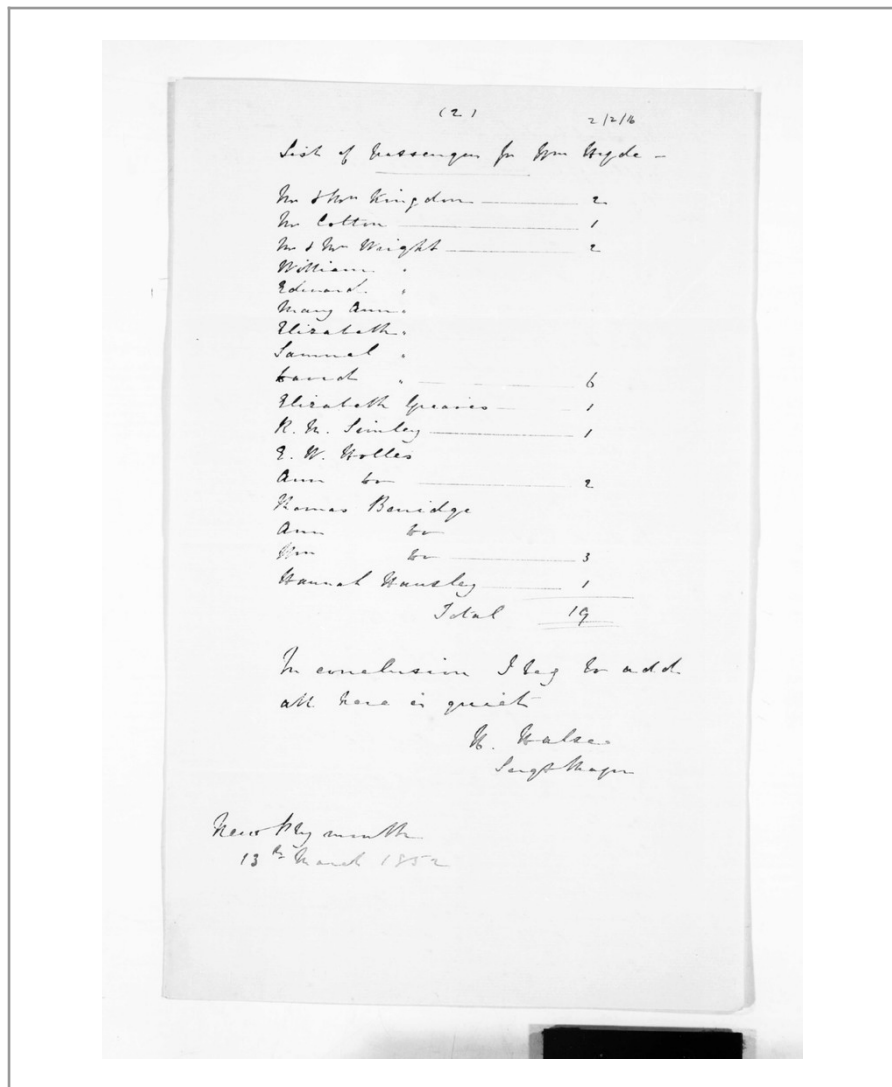 (2)
2/2/16
List of Passengers pr Wm Hyde -
Mr & Mrs Kingdon 2
Mr Cotton 1
Mr & Mrs Wright 2
William "
Edward "
Mary Ann "
Elizabeth "
Samuel "
" 6
Elizabeth Greaves 1
R. M. 1
E. W. Holles
Ann Do 2
Thomas
Ann Do
Wm Do 3
Hannah 1
Total 19
In conclusion I beg to add
all here is quiet
H. Halse
Sergt Major
New Plymouth
13th March 1852